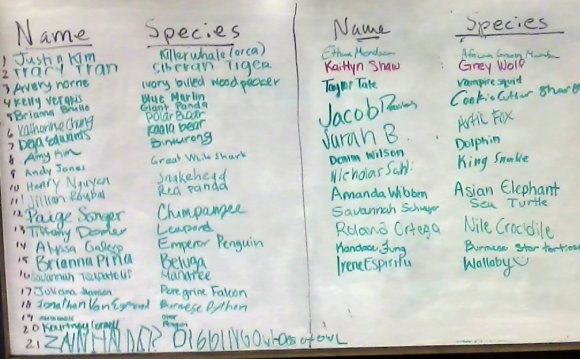 Name Species
1 Justin Kim Killer whale (orca)
2 Tracy Tran Siberan Tiger
3 Avery horne Ivory billed woodpecker
4 Kelly Vergas Blue Marlin
5 Brianna Giant Panda
6 Katharine Chung Polar Bear
7 Deja Edwards Koala bear
8 Amy Kim Binturong
9 Andy Jones Great White Shark
10 Henry Nguyen Snakehead
11 Jillian Red Panda
12 Paige Songer Chimpanzee
13 Tiffany Leopard
14 Alyssa Gallego Emperor Penguin
15 Brianna Piña Beluga
16 Savannah Manatee
17 Juliana Peregrine Falcon
18 Jonathan Burnese Python
19
20 Kourtney Penguin
21 DIGGING OWL
Name Species
Ethan African Green
Kaitlyn Shaw Grey Wolf
Taylor Tate vampire squid
Jacob Cookie Cutter Shark
Sarah B. Artic Fox
Denim Wilson Dolphin
Nicholas King Snake
Amanda Wibben Asian Elephant
Savannah Sea Turtle
Roland Ortega Nile Crocidile
Kandace Jung Burmese Star tortoise
Irene Espiritu Wallaby